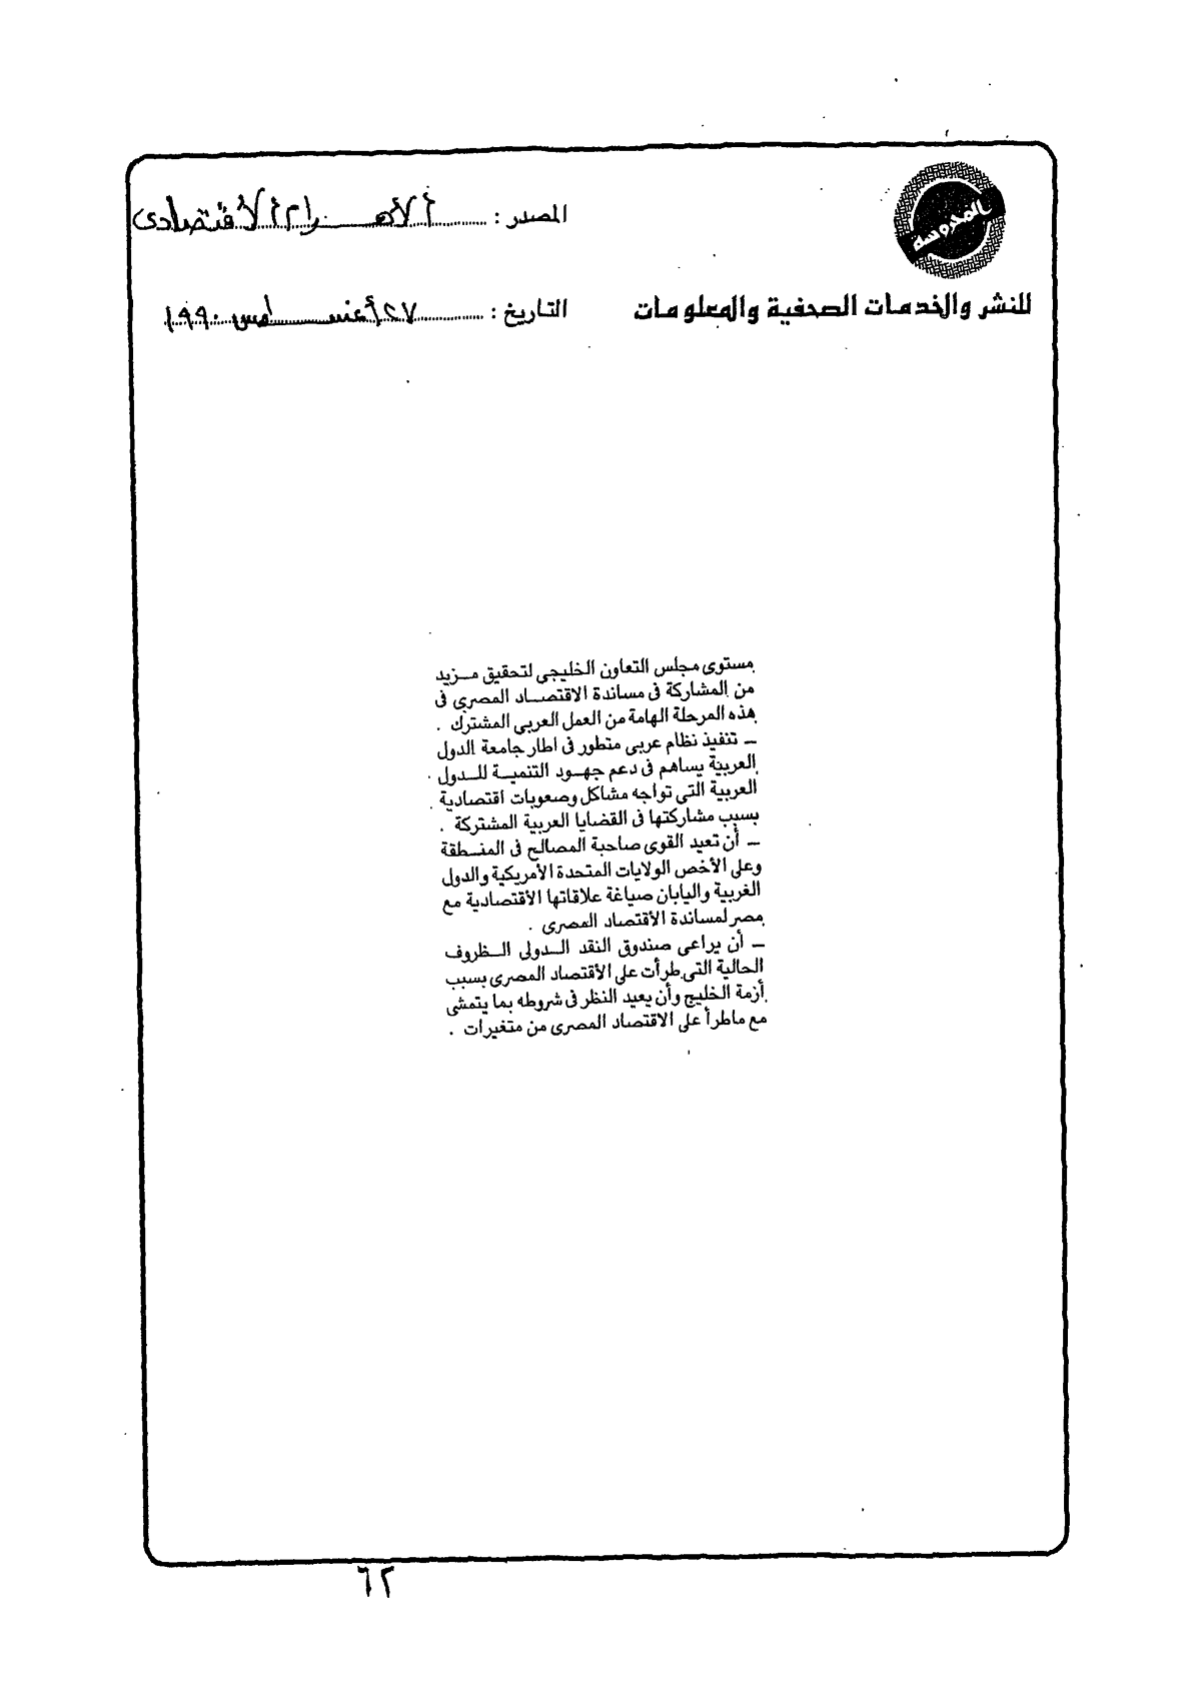 المحروسة
المصدر : الأهرام الأقتصادى
للنشر والخدمات الصحفية والمعلومات
التاريخ : ٢٧ أغسطس ١٩٩٠
مستوى مجلس التعاون الخليجى لتحقيق مـزيد
من المشاركة فى مساندة الاقتصـاد المصرى فى
هذه المرحلة الهامة من العمل العربى المشترك .
ـ تنفيذ نظام عربى متطور فى اطار جامعة الدول
العربية يساهم فى دعم جهـود التنميـة للـدول
العربية التى تواجه مشاكل وصعوبات اقتصادية
بسبب مشاركتها فى القضايا العربية المشتركة .
ـ أن تعيد القوى صاحبة المصالح فى المنـطقة
وعلى الأخص الولايات المتحدة الأمريكية والدول
الغربية واليابان صياغة علاقاتها الأقتصادية مع
مصر لمساندة الأقتصاد المصرى .
ـ أن يراعى صندوق النقد الـدولى الـظروف
الحالية التى طرأت على الأقتصاد المصرى بسبب
أزمة الخليج وأن يعيد النظر فى شروطه بما يتمشى
مع ماطرأ على الاقتصاد المصرى من متغيرات .
٦٢